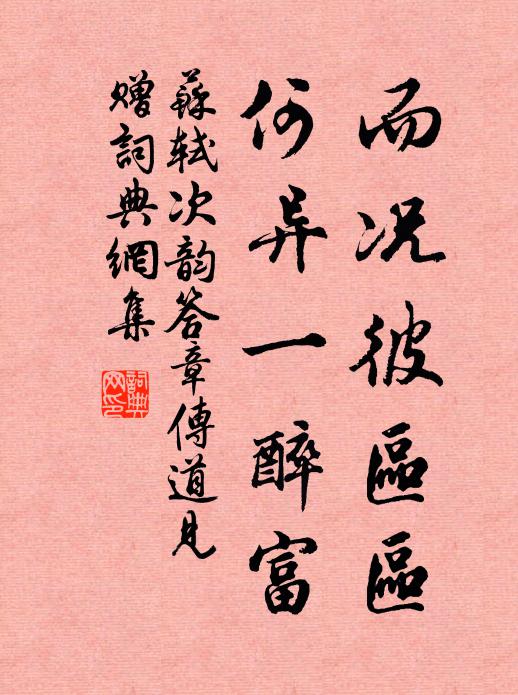 而况彼區區
何异一醉富
蘇軾次韵答章傳道見
贈詞典網集
詞典
网印